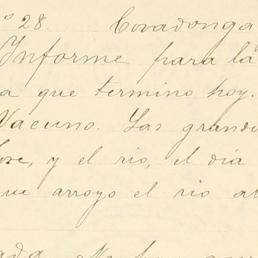 º 28. Covadonga
Informe para la
a que termino hoy.
Vacuno. Las grande
y el rio, el día
ue arroyo el rio a